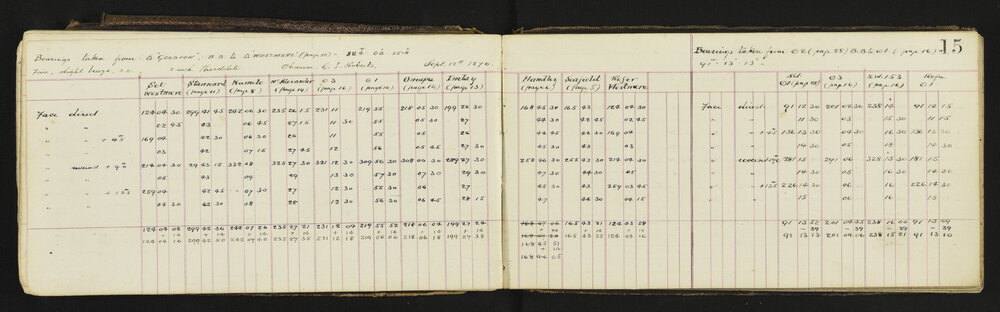 Bearings taken from B'GOODSON', B.B. to B'WESTMERE' (page 10)
Fine, slight breeze, S.E. 5 inch Theodolite Observer G. J. Roberts Sept. 12th 1896.
Set Westmere Stannard (page 11) Numite (page 8) McAlexander (page 14) O3 (page 16) O1 (page 16) Omapu (page 15) Imlay (page 13)
Face direct 124 04 30 299 41 45 242 06 30 235 26 15 231 11 219 55 218 05 30 199 26 30
" " 02 45 43 06 45 27 15 11 30 55 05 30 27
" " + 45° 169 04 42 30 06 30 26 11 55 05 26
" " 03 42 07 15 27 45 12 56 05 45 27 30
" reversed + 90° 214 04 30 29 43 15 332 08 325 27 30 321 12 30 309 56 30 308 06 30 289 27 30
" " 05 43 09 29 13 30 57 30 07 30 29 30
" " + 135° 259 04 42 45 07 30 27 12 30 55 30 06 27
" " 04 30 42 30 08 28 12 30 56 30 06 45 28 15
124 04 04 299 42 36 242 07 26 235 27 21 231 12 04 219 56 52 218 06 04 199 27 24
+ 14 + 14 + 14 + 14 + 14
124 04 16 299 42 50 242 07 40 235 27 35 231 12 18 219 56 06 218 06 18 199 27 38
Handley (page 6) Seafield (page 5) Refer Westmere
168 45 30 165 43 124 04 30
44 30 42 45 02 45
44 45 42 30 169 04
45 30 43 03
258 46 30 255 43 30 214 04 30
47 30 44 30 05
45 30 43 259 03 45
47 44 30 04 15
165 43 21 124 03 58
+ 14 + 14
165 43 35 124 04 16
168 45 51
+ 14
168 46 05
15
Bearings taken from O2 (page 28) B.B to O1 (page 16)
91° 13' 13"
Set O1 (page 28) O3 (page 16) S.W. 153 (page 16) Refer O1
Face direct 91 12 30 201 02 30 238 14 91 12 15
" " 11 30 05 15 30 11 15
" " + 45° 136 13 30 04 30 16 136 13 30
" " 14 30 05 18 14 30
" reversed + 90° 281 15 291 06 328 15 30 181 15
" " 14 30 05 16 30 14 30
" " + 135° 226 14 30 06 16 226 14 30
" " 15 06 16 15
91 13 52 201 04 45 238 16 00 91 13 49
- 39 - 39 - 39 - 39
91 13 13 201 04 06 238 15 21 91 13 10